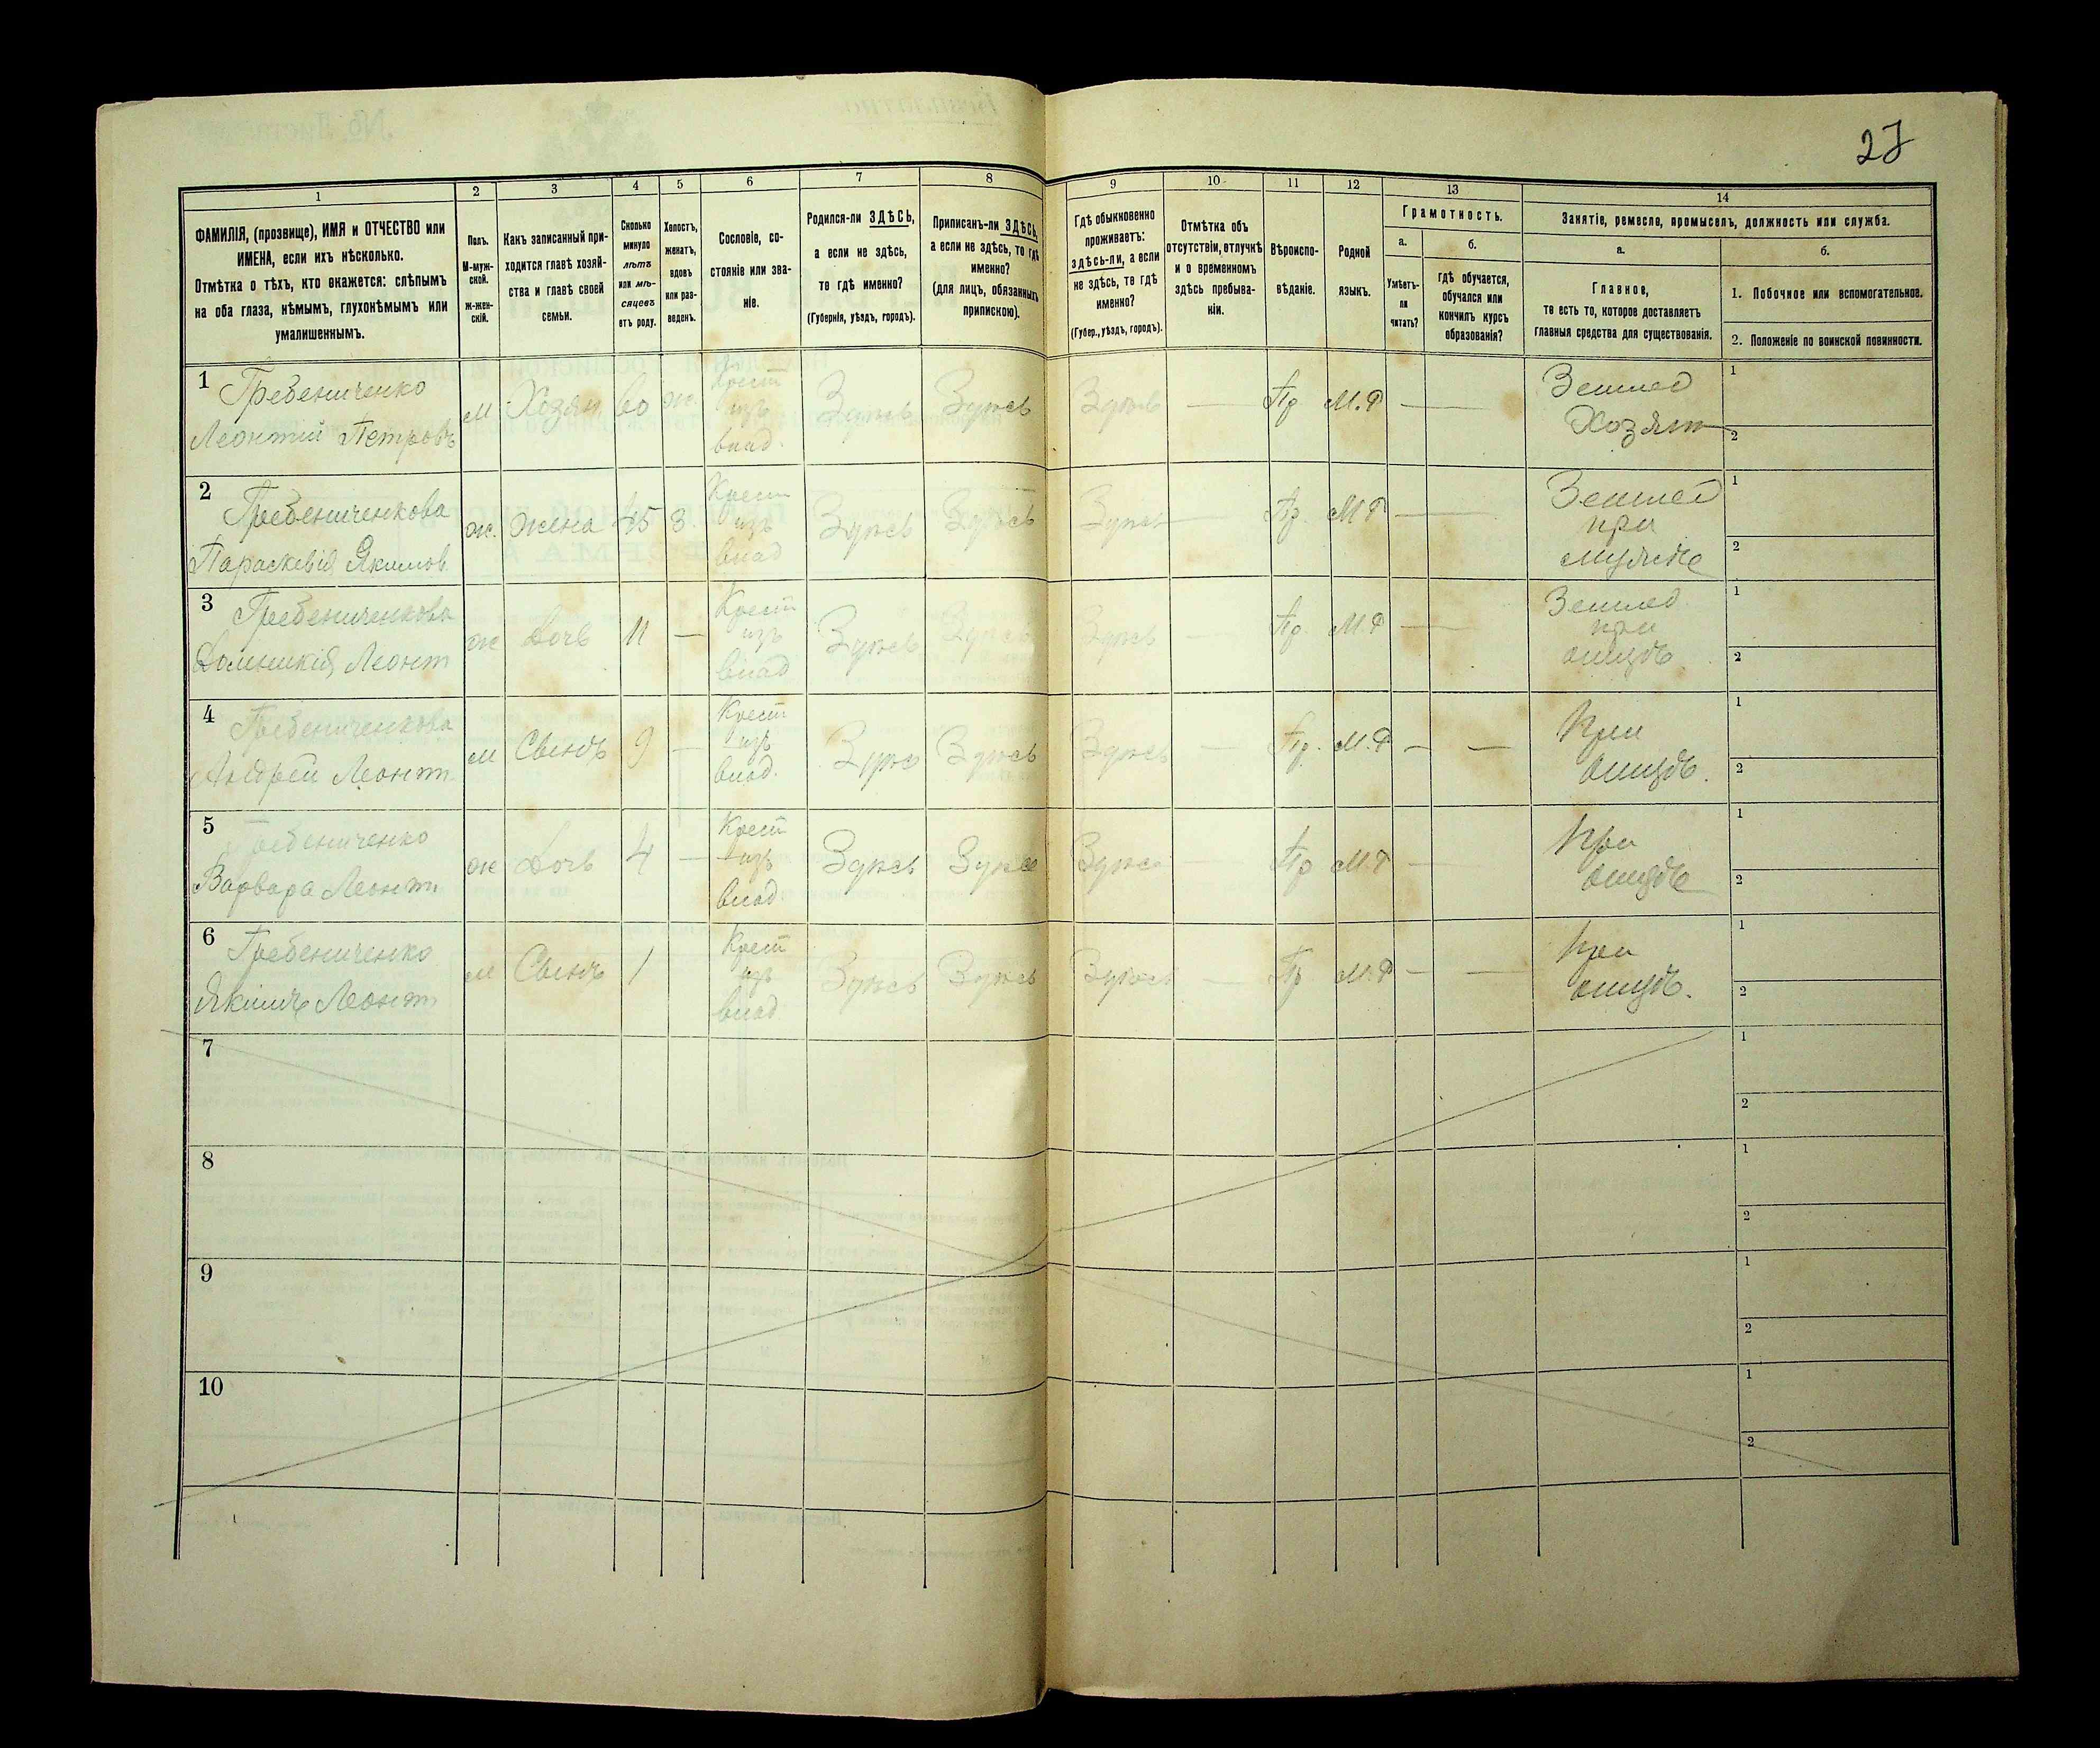 27
1
ФАМИЛІЯ, (прозвище), ИМЯ и ОТЧЕСТВО или
ИМЕНА, если ихъ нѣсколько.
Отмѣтка о тѣхъ, кто окажется: слѣпымъ
на оба глаза, нѣмымъ, глухонѣмымъ или
умалишеннымъ.
2
Полъ.
М-муж-
ской.
Ж-жен-
скій.
3
Какъ записанный при-
ходится главѣ хозяй-
ства и главѣ своей
семьи.
4
Сколько
минуло
лѣтъ
или мѣ-
сяцевъ
отъ роду.
5
Холостъ,
женатъ,
вдовъ
или раз-
веденъ.
6
Сословіе, со-
стояніе или зва-
ніе.
7
Родился-ли ЗДѢСЬ,
а если не здѣсь,
то гдѣ именно?
(Губернія, уѣздъ, городъ).
8
Приписанъ-ли ЗДѢСЬ,
а если не здѣсь, то гдѣ
именно?
(для лицъ, обязанныхъ
припискою).
9
Гдѣ обыкновенно
проживаетъ:
здѣсь-ли, а если
не здѣсь, то гдѣ
именно?
(Губер., уѣздъ, городъ).
10
Отмѣтка объ
отсутствіи, отлучкѣ
и о временномъ
здѣсь пребыва-
ніи.
11
Вѣроиспо-
вѣданіе.
12
Родной
языкъ.
13
Грамотность.
а.
Умѣетъ-
ли
читать?
б.
гдѣ обучается,
обучался или
кончилъ курсъ
образованія?
14
Занятіе, ремесло, промыселъ, должность или служба.
а.
Главное,
то есть то, которое доставляетъ
главныя средства для существованія.
б.
1. Побочное или вспомогательное.
2. Положеніе по воинской повинности.
1
Гребениченко
Леонтій Петровъ
м
Хозяин
60
ж.
Крест
изъ
влад.
Здѣсь
Здѣсь
Здѣсь
—
Пр
М.Р
—
Землед
Хозяин
1
2
2
Гребениченкова
Параскевія Якимов
ж.
Жена
45
З.
Крест
изъ
влад
Здѣсь
Здѣсь
Здѣсь
Пр.
М Р
—
Землед
при
мужѣ
1
2
3
Гребениченкова
Домникія Леонт
ж
Дочь
11
—
Крест
изъ
влад
Здѣсь
Здѣсь
Здѣсь
—
Пр.
М.Р
—
Землед
при
отцѣ
1
2
4
Гребениченкова
Андрей Леонт.
м
Сынъ
9
—
Крест
изъ
влад.
Здѣс
Здѣсь
Здѣсь
—
Пр.
М.Р
— —
При
отцѣ.
1
2
5
Гребениченко
Варвара Леонт
ж
Дочь
4
—
Крест
изъ
влад.
Здѣсь
Здѣсь
Здѣсь
Пр
М.Р
—
При
отцѣ
1
2
6
Гребениченко
Якимъ Леонт
м
Сынъ
1
Крест
изъ
влад
Здѣсь
Здѣсь
Здѣсь
—
Пр
М.Р
— —
При
отцѣ.
1
2
7
1
2
8
1
2
9
1
2
10
1
2